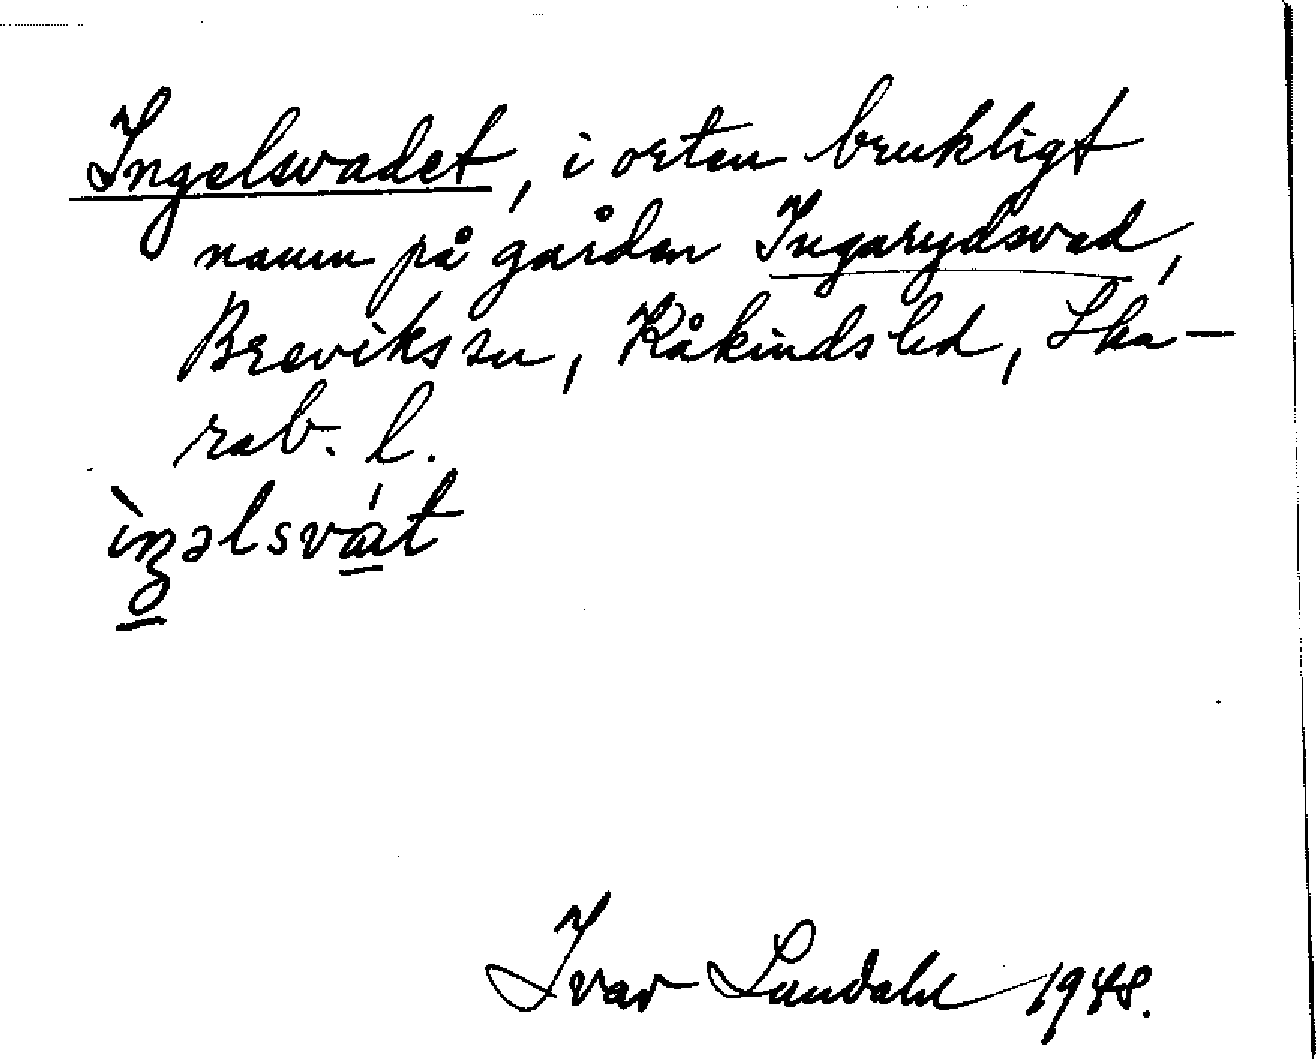 Ingelsvadet, i orten brukligt
namn på gården Ingarydsvad,
Breviks sn, Kåkinds hd, Ska-
rab. l.
ìŋəlsvát
Ivar Lundahl 1948.